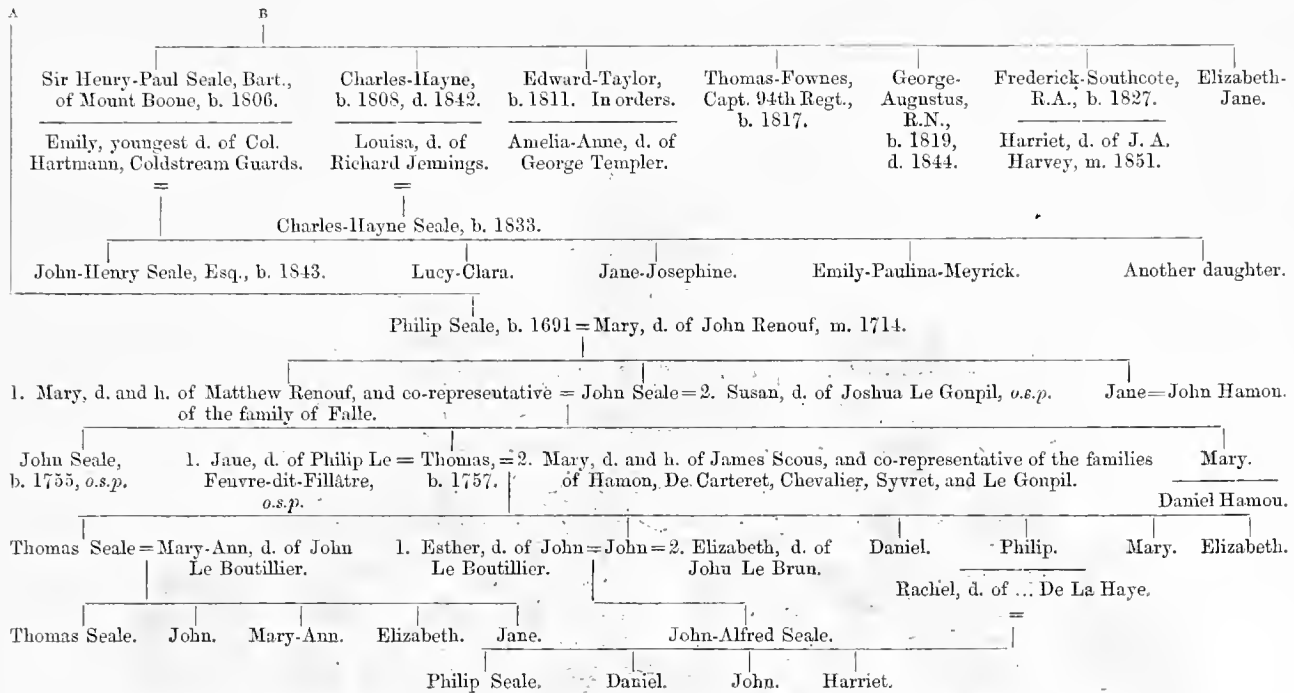 A B
Sir Henry-Paul Seale, Bart.,
of Mount Boone, b. 1806.
Emily, youngest d. of Col.
Hartmann, Coldstream Guards.
=
Charles-Hayne,
b. 1808, d. 1842.
Louisa, d. of
Richard Jennings.
=
Edward-Taylor,
b. 1811. In orders.
Amelia-Anne, d. of
George Templer.
Thomas-Fownes,
Capt. 94th Regt.,
b. 1817.
George-
Augustus,
R.N.,
b. 1819,
d. 1844.
Frederick-Southcote,
R.A., b. 1827.
Harriet, d. of J. A.
Harvey, m. 1851.
Elizabeth-
Jane.
Charles-Hayne Seale, b. 1833.
John-Henry Seale, Esq., b. 1843. Lucy-Clara. Jane-Josephine. Emily-Paulina-Meyrick. Another daughter.
Philip Seale, b. 1691 = Mary, d. of John Renouf, m. 1714.
1. Mary, d. and h. of Matthew Renouf, and co-representative = John Seale = 2. Susan, d. of Joshua Le Gonpil, o.s.p. Jane = John Hamon.
of the family of Falle.
John Seale,
b. 1755, o.s.p.
1. Jane, d. of Philip Le = Thomas, = 2. Mary, d. and h. of James Scous, and co-representative of the families
Feuvre-dit-Fillâtre, b. 1757. of Hamon, De Carteret, Chevalier, Syvret, and Le Gonpil.
o.s.p.
Mary.
Daniel Hamou.
Thomas Seale = Mary-Ann, d. of John
Le Boutillier.
1. Esther, d. of John = John = 2. Elizabeth, d. of
Le Boutillier. John Le Brun.
Daniel. Philip. Mary. Elizabeth.
Rachel, d. of ... De La Haye.
=
Thomas Seale. John. Mary-Ann. Elizabeth. Jane. John-Alfred Seale.
Philip Seale. Daniel. John. Harriet.